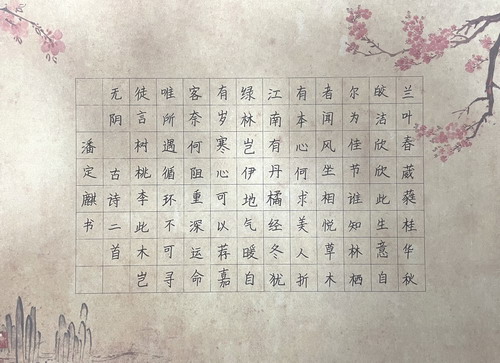 兰叶春葳蕤桂华秋
皎洁欣欣此生意自
尔为佳节谁知林栖
者闻风坐相悦草木
有本心何求美人折
江南有丹橘经冬犹
绿林岂伊地气暖自
有岁寒心可以荐嘉
客奈何阻重深运命
唯所遇循环不可寻
徒言树桃李此木岂
无阴 古诗二首
潘定麒书